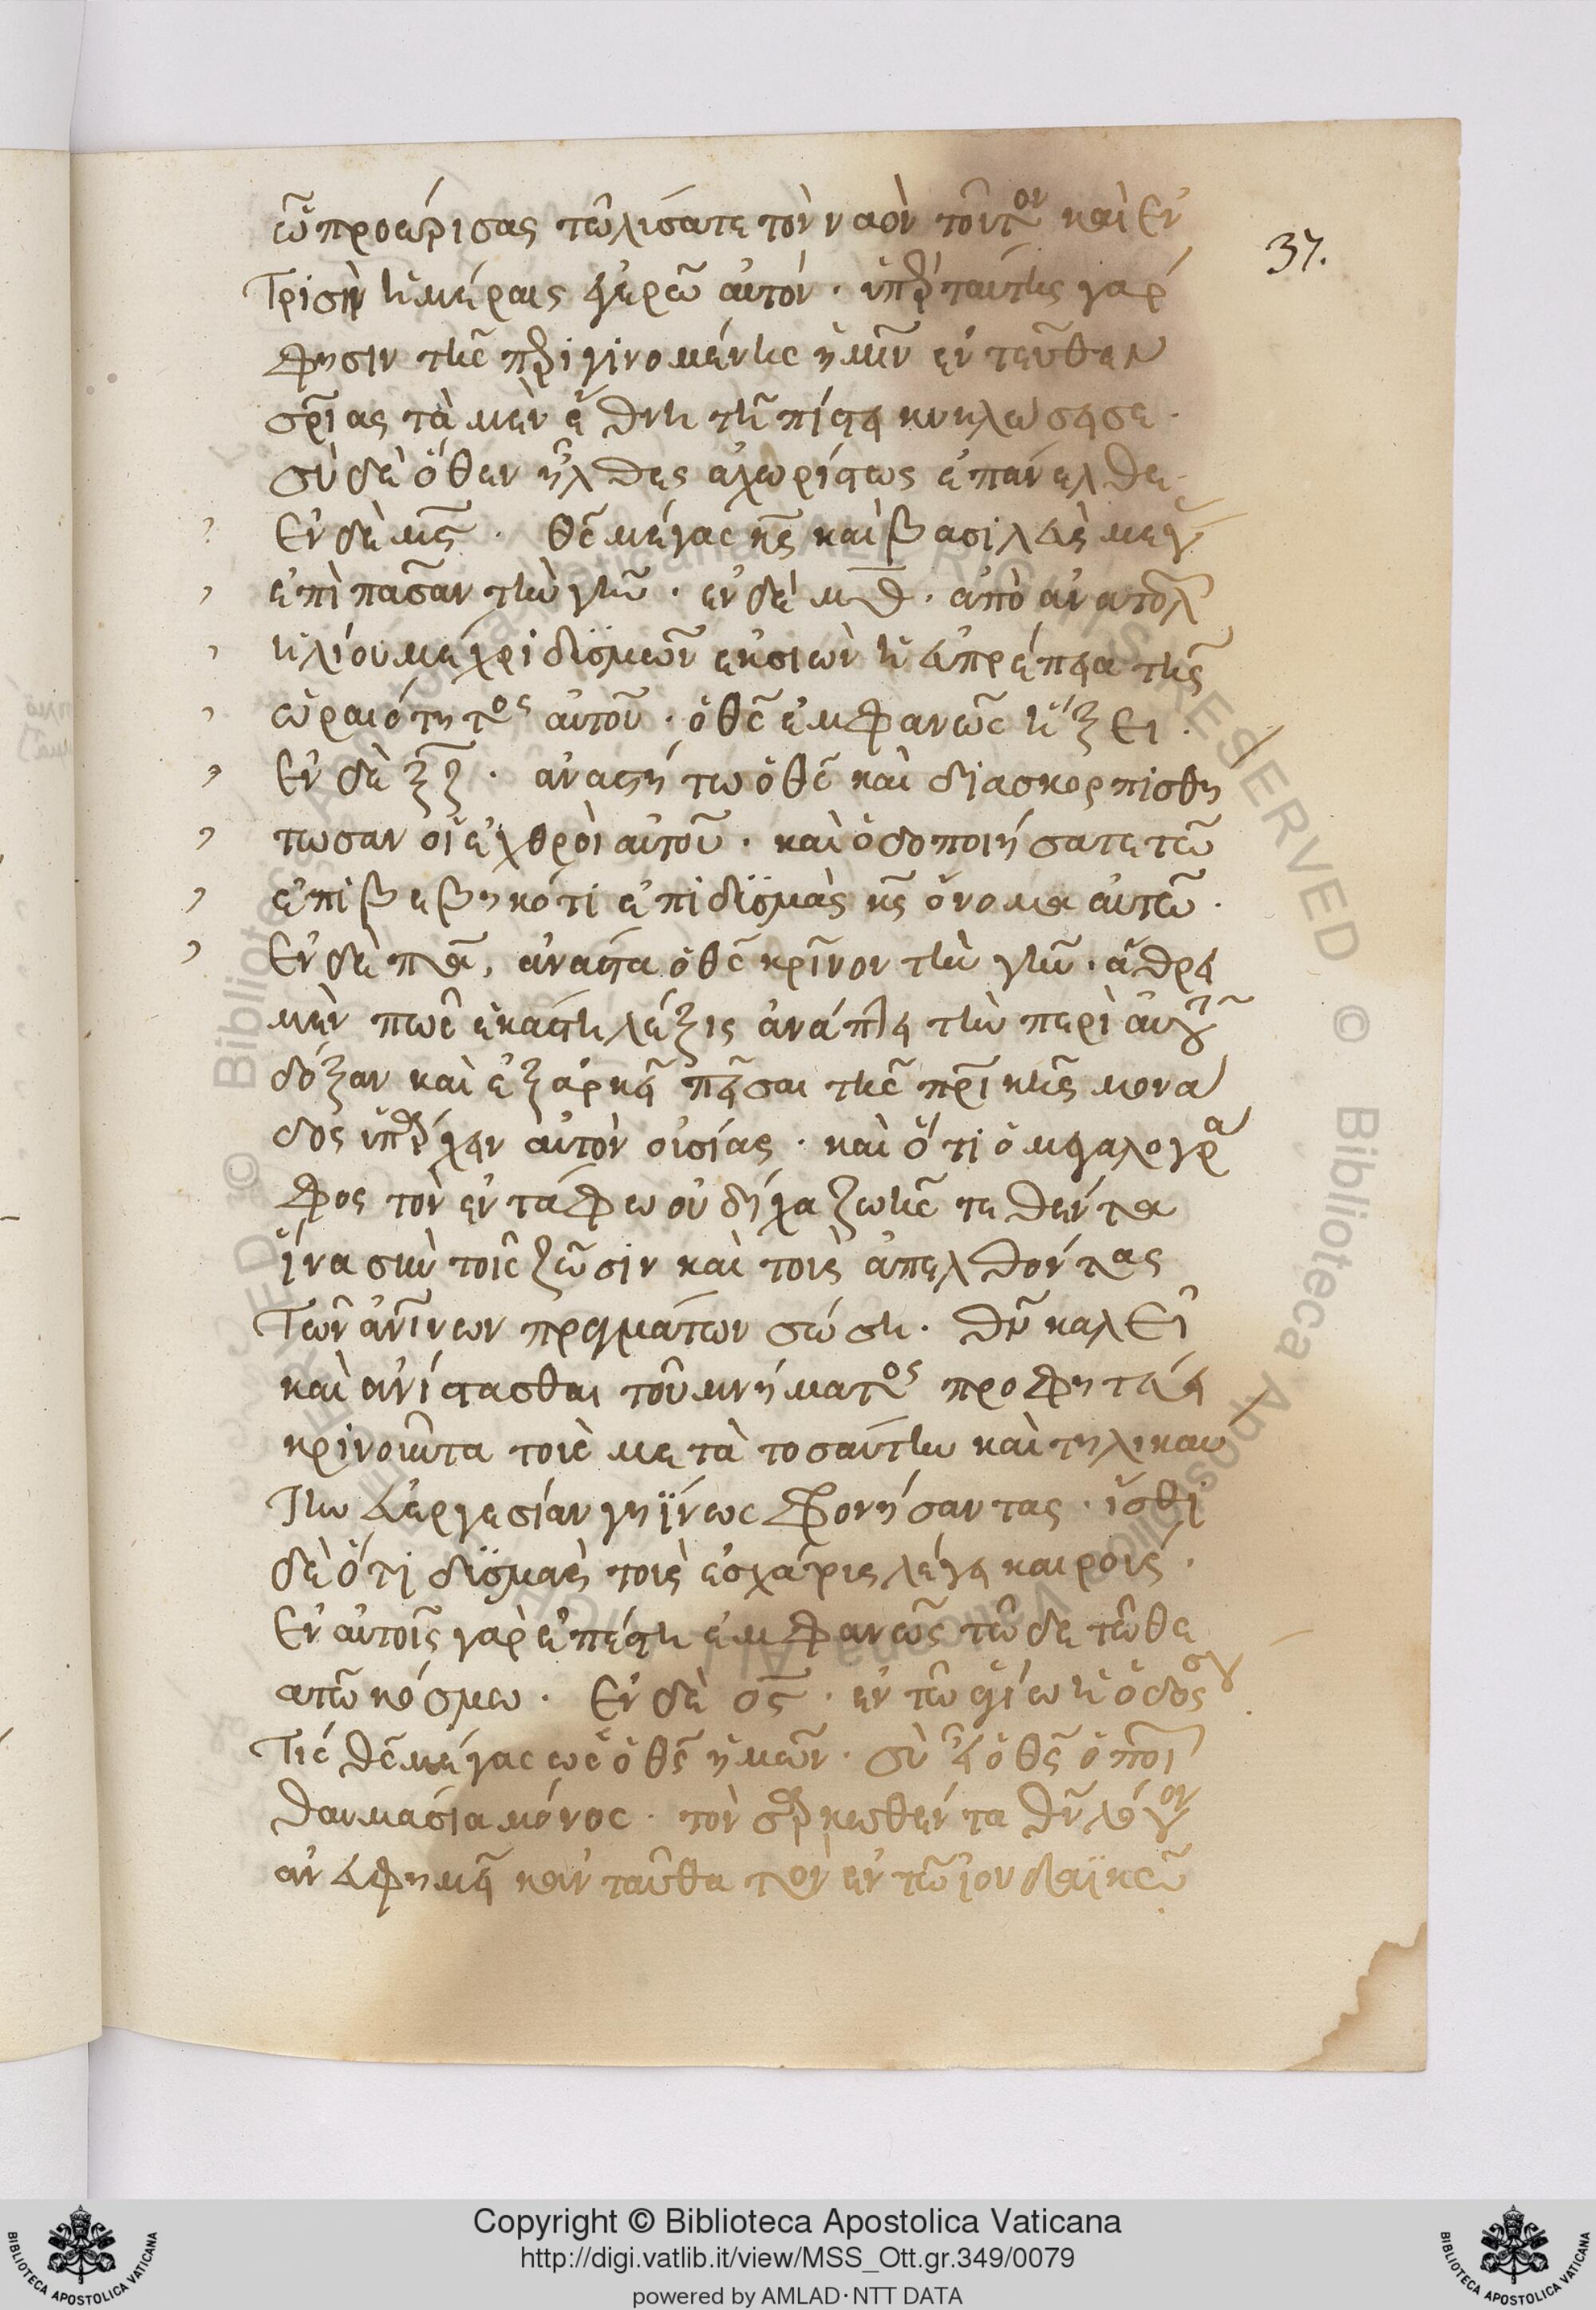 ὧ προώρισας τῶ λύσατε τὸν ναὸν τοῦτον καὶ ἐν
37.
τρισὶν ἡμέραις ἐγερῶ αὐτόν · ὑπὲρ ταύτης γάρ
φησιν τῆς περιγινομένης ἡμῖν ἐντεῦθεν
σρίας τὰ μὲν ἔθνη τῆ πίστει κυκλώσει σε ·
σὺ δὲ ὅθεν ἦλθες ἀχωρίστως ἐπάνελθε ·
Ἐν δὲ μς · θς μέγας κς καὶ βασιλεὺς μέγ
ἐπὶ πᾶσαν τὴν γῆν · ἐν δὲ μθ · ἀπὸ ἀνατολ
ἡλίου μέχρι δυσμῶν ἐκ σιὼν ἡ εὐπρέπεια τῆς
ὡραιότητος αὐτοῦ · ὁ θς ἐμφανῶς ἥξει ·
Ἐν δὲ ξζ · ἀναστήτω ὁ θς καὶ διασκορπισθή
τωσαν οἱ ἐχθροὶ αὐτοῦ · καὶ ὁδοποιήσατε τῶ
ἐπιβεβηκότι ἐπὶ δυσμὰς κς ὄνομα αὐτῶ ·
Ἐν δὲ πα, ἀνάστα ὁ θς κρῖνον τὴν γῆν · ἄθρει
μὲν πῶς ἑκάστη λέξις ἀνάπτει τὴν περὶ αὐτ
δόξαν καὶ ἐξαρκεῖ πεῖσαι τῆς πρικῆς μονά
δος ὑπάρχειν αὐτὸν οὐσίας · καὶ ὅτι ὁ μεγαλογρά
φος τὸν ἐν τάφω οὐ δίχα ζωῆς τεθέντα
ἵνα σὺν τοῖς ζῶσιν καὶ τοὺς ἀπελθόντας
τῶν ἀνίνων πραγμάτων σώση · θν καλεῖ
καὶ ἀνίστασθαι τοῦ μνήματος προφητεύει
κρινοῦντα τοὺς μετὰ τοσαύτην καὶ τηλικαύ
την εὐεργεσίαν γηίνως φρονήσαντας · ἴσθι
δὲ ὅτι δυσμὰς τοὺς ἐσχάτους λέγει καιρούς ·
Ἐν αὐτοῖς γὰρ ἐπέστη ἐμφανῶς τῶδε τῶ θε
άτω κόσμω · Ἐν δὲ ος · ἐν τῶ ἁγίω ἡ ὁδός σου
τίς θς μέγας ὡς ὁ θς ἡμῶν · σὺ εἶ ὁ θς ὁ ποι
θαυμάσια μόνος · τὸν σαρκωθέντα θν λόγον
ἀνευφημεῖ κἀνταῦθα τὸν ἐν τῶ ἰουδαϊκῶ
Copyright © Biblioteca Apostolica Vaticana
http://digi.vatlib.it/view/MSS_Ott.gr.349/0079
powered by AMLAD·NTT DATA